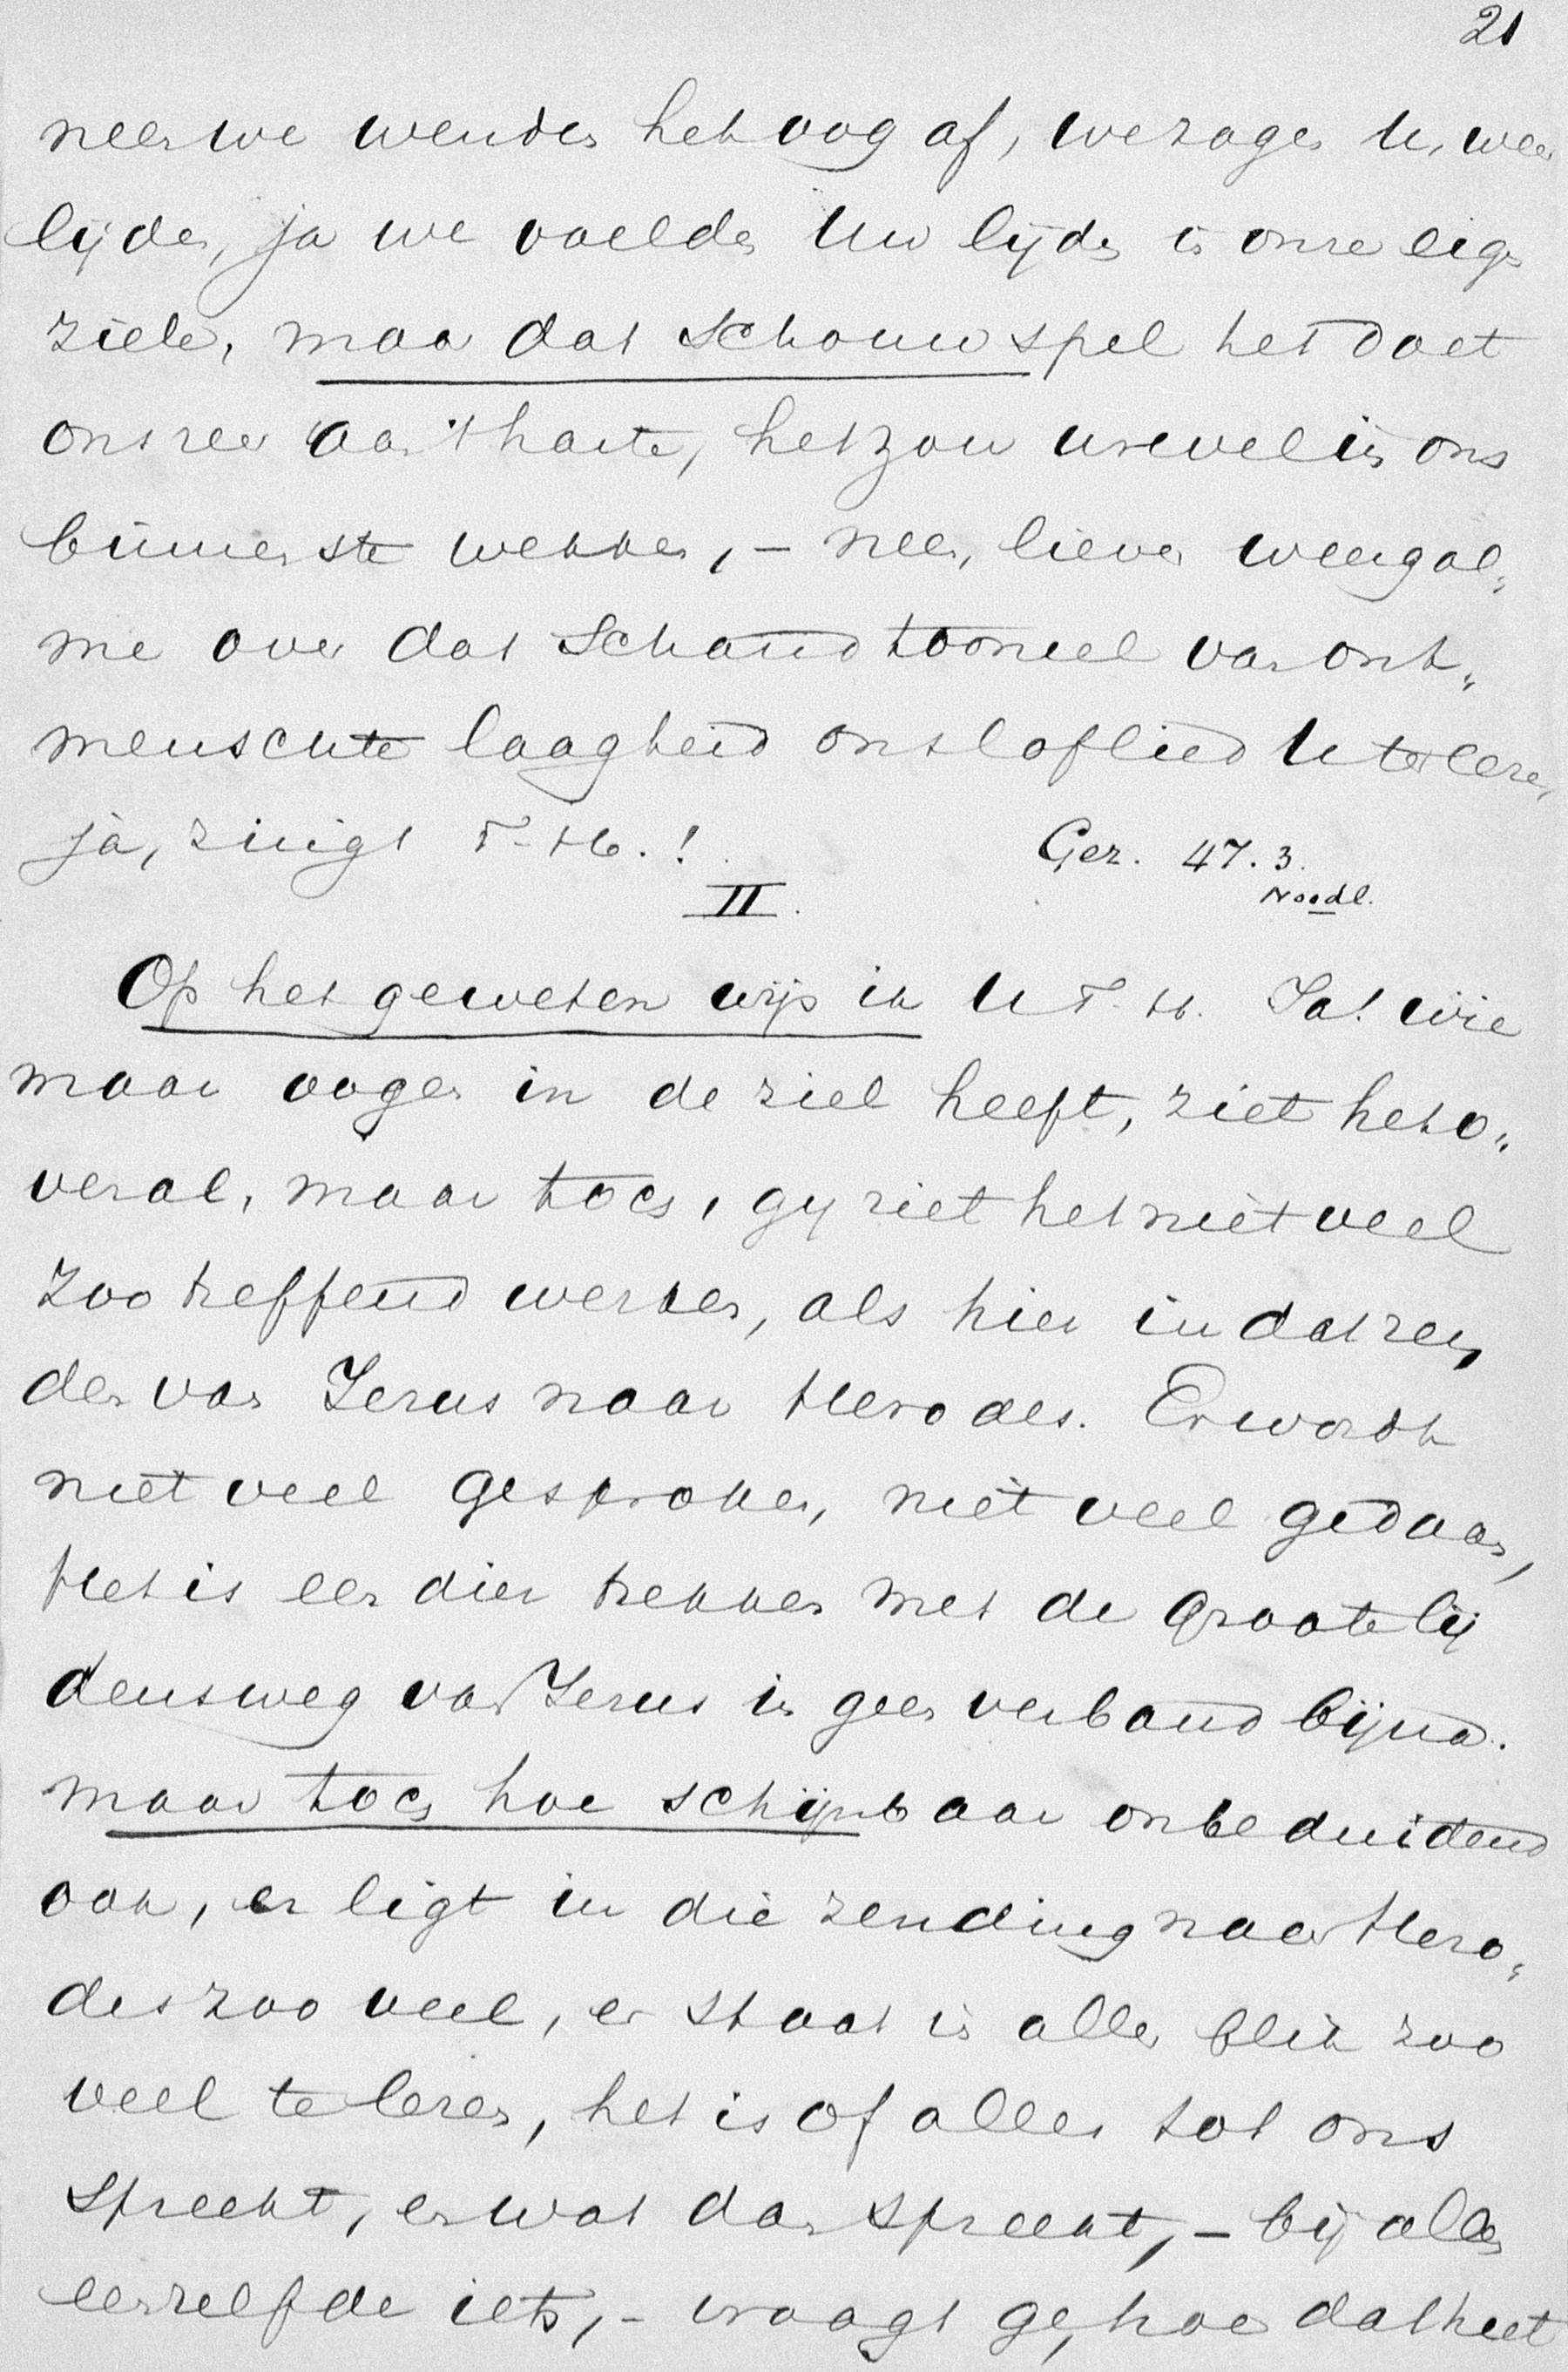 21
neen we wenden het oog af, we zagen U, ween
lijden, ja we voelden Uw lijden in onze eigen
ziele, maar dat schouwspel het doet
ons zeer aan 't harte, het zou wrevel in ons
binnenste wekken, - neen, liever weergal„
me over dat Schandtooneel van ont„
menschte laagheid ons loflied U ter eere,
ja, zingt T. H.!
Gez. 47. 3.
Noodl.
II.
Op het geweten wijs ik U T. H. Ja! wie
maar oogen in de ziel heeft, ziet het o„
veral, maar toch, gij ziet het niet veel
zoo treffend werken, als hier in dat zen„
den van Jezus naar Herodes. Er wordt
niet veel gesproken, niet veel gedaan,
Het is een dier trekken met de groote lij
densweg van Jezus in geen verband bijna.
maar toch hoe schijnbaar onbeduidend
ook, er ligt in die zending naar Hero„
des zoo veel, er staat in aller blik zoo
veel te lezen, het is of alles tot ons
spreekt, en wat dan spreekt, - bij allen
eenzelfde iets, - vraagt ge, hoe dat heet